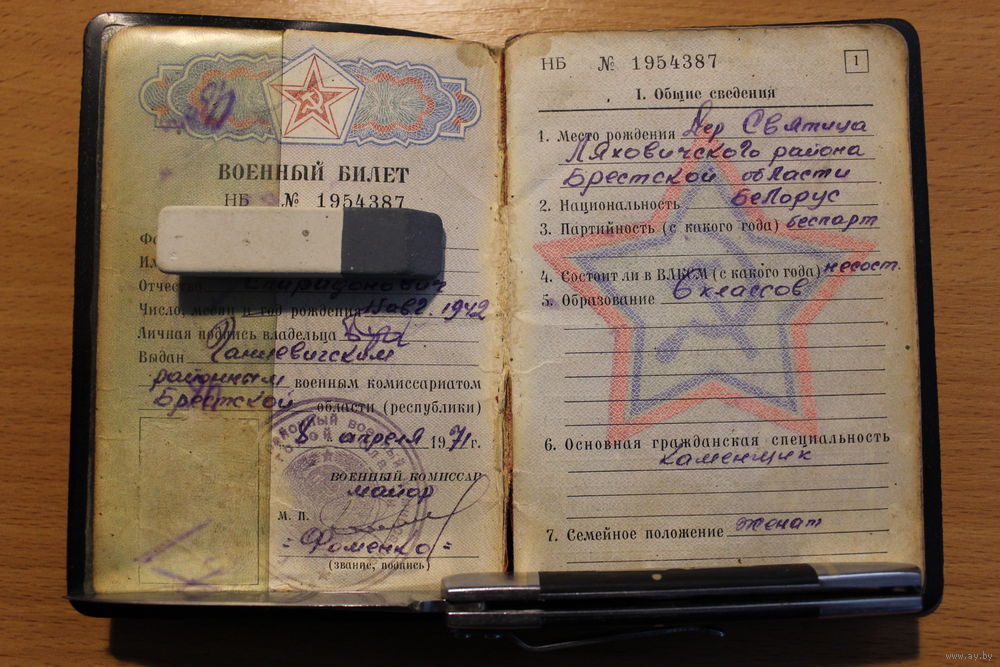 ВОЕННЫЙ БИЛЕТ
НБ № 1954387
Отчество Спиридонович
Число, месяц и год рождения 15 авг. 1942
Личная подпись владельца
Выдан Ганцевичским
районным военным комиссариатом
Брестской области (республики)
8 апреля 1971 г.
ВОЕННЫЙ КОМИССАР
майор
М. П.
=Фоменко=
(звание, подпись)
НБ № 1954387
1
I. Общие сведения
1. Место рождения Дер Святица
Ляховичского района
Брестской области
2. Национальность Белорус
3. Партийность (с какого года) беспарт
4. Состоит ли в ВЛКСМ (с какого года) несост.
5. Образование 6 классов
6. Основная гражданская специальность
каменщик
7. Семейное положение женат
www.ay.by